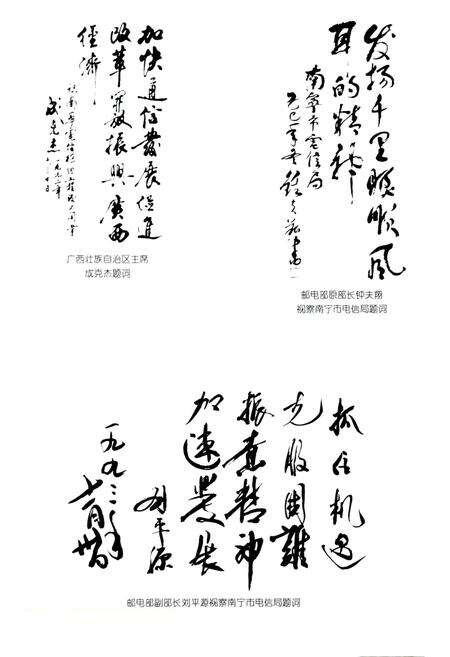 加快通信发展促進
改革開放振興廣西
經濟
成克杰
广西壮族自治区主席
成克杰题词
发扬千里眼顺风
耳的精神
南宁市电信局
邮电部原部长钟夫翔
视察南宁市电信局题词
抓住机遇
克服困難
振奮精神
加速發展
刘平源
一九九三年
十一月卅日
邮电部副部长刘平源视察南宁市电信局题词